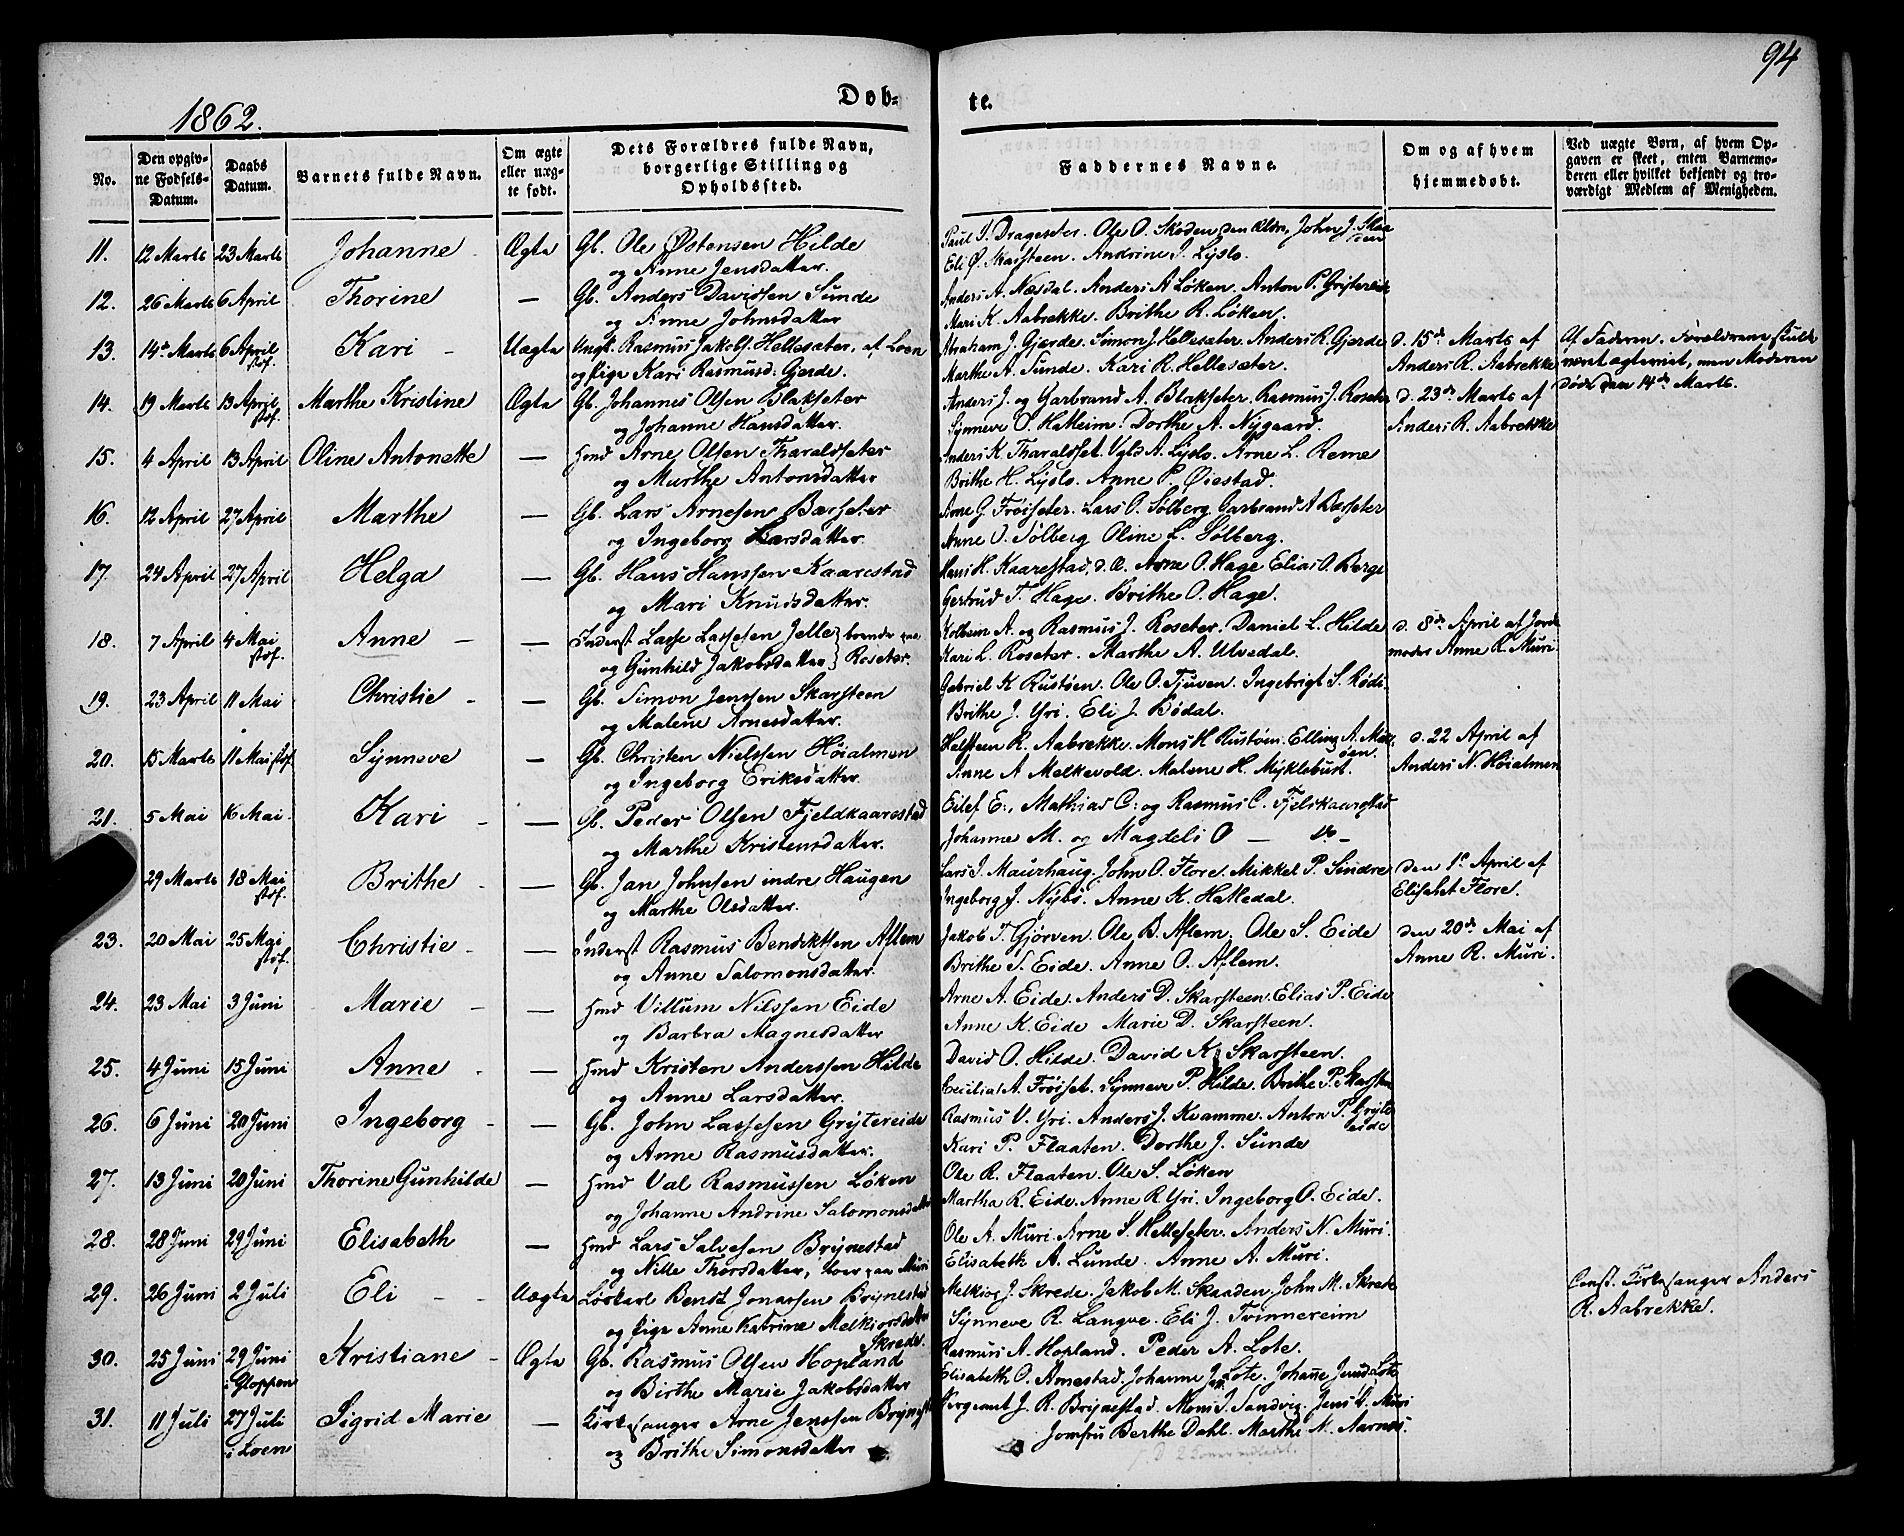 94
1862.
Dob-
te.
No.
Den opgiv-
ne Fødsels-
Datum.
Daabs
Datum.
Barnets fulde Navn.
Om ægte
eller uæg-
te født.
Dets Forældres fulde Navn,
borgerlige Stilling og
Opholdssted.
Faddernes Navne.
Om og af hvem
hjemmedøbt.
Ved uægte Børn, af hvem Op-
gaven er skeet, enten Barnemo-
deren eller hvilket bekjendt og tro-
værdigt Medlem af Menigheden.
11. 12 Marts 23 Marts Johanne Ægte Gb. Ole Østensen Hilde
og Anne Jensdatter.
Paul S. Dragesæter. Ole O. Skoden den Ældre, John J. Skaa
Eli Ø. Skarsteen. Andrine I. Lyslo.
12. 26 Marts 6 April Thorine — Gb. Anders Davidsen Sunde
og Anne Johnsdatter
Anders A. Næsdal. Anders A Løken. Anton P. Grytereide
Mari K. Aabrekke. Brithe R. Løken.
13. 14de Marts 6 April stof. Kari Uægte Ungk. Rasmus Jakobs. Hellesæter, af Loen
og Pige Kari Rasmusd: Gjerde.
Abraham J. Gjerde. Simon J. Hellesæter. Anders R. Gjerde
Marthe A. Sunde. Kari R. Hellesæter.
d. 15de Marts af
Anders R. Aabrekke
Af Faderen. Forældrene skulde
været ægteviet, men Moderen
døde den 14de Marts.
14. 19 Marts 13 April stof. Marthe Kristine Ægte Gb. Johannes Olsen Blakseter
og Johanne Hansdatter.
Anders J. og Garbrand A. Blakseter. Rasmus J. Roseter
Synneve O. Hatleim. Dorthe A. Nygaard.
d. 23de Marts af
Anders R. Aabrekke
15. 4 April 13 April Oline Antonette — Hmd Arne Olsen Tharaldseter
og Marthe Antonsdatter
Anders K. Tharaldset. Vgld A. Lyslo. Arne L. Reme
Brithe H. Lyslo. Anne P. Øiestad.
16. 12 April 27 April Marthe — Gb. Lars Arnesen Bærseter
og Ingeborg Larsdatter.
Arne G. Frøiseter. Lars O. Solberg. Garbrand A Bærseter
Anne O. Solberg Oline L. Solberg.
17. 24 April 27 April Helga — Gb. Hans Hanssen Kaarestad
og Mari Knudsdatter.
Hans H. Kaarestad, d. Æ. Arne O. Hage Elias O. Berge
Gertrud T. Hage. Brithe O. Hage.
18. 7 April 4 Mai stof. Anne — Inderst Lasse Lassesen Jelle boende paa
og Gunhild Jakobsdatter Roseter.
Kolbein A. og Rasmus J. Roseter. Daniel L. Hilde
Kari L. Roseter. Marthe A. Ulvedal.
d. 8de April af Jorde
moder Anne R. Muri
19. 23 April 11 Mai Christie — Gb. Simon Jenssen Skarsteen
og Malene Arnesdatter.
Gabriel K Rustøen. Ole O. Tjuven. Ingebrigt S. Rødi.
Brithe J. Yri. Eli J. Bødal.
20. 15 Marts 11 Mai stof. Synneve — Gb. Christen Nielssen Høialmen
og Ingeborg Eriksdatter.
Halsteen R. Aabrekke. Mons H Rustøen. Elling A. Mel
øen.
Anne A Melkevold. Malene H. Myklebust.
d. 22 April af
Anders N. Høialmen
21. 5 Mai 16 Mai Kari — Gb. Peder Olsen Fjeldkaarestad
og Marthe Kristensdatter.
Eilef E:, Mathias C: og Rasmus C. Fjelskaarstad
Johanne M. og Magdeli O — do —
29 Marts 18 Mai stof. Brithe — Gb. Jan Johnsen indre Haugen
og Marthe Olsdatter.
Lars I. Maurhaug. John O. Flore. Mikkel P. Sindre
Ingeborg J. Nybø. Anne K. Hatledal.
den 1e April af
Elisabet Flore.
23. 20 Mai 25 Mai stof. Christie — Inderst Rasmus Bendiktsen Aflem
og Anne Salomonsdatter.
Jakob T. Gjørven. Ole B. Aflem. Ole S. Eide
Brithe S. Eide. Anne O. Aflem.
den 20de Mai af
Anne R. Muri.
24. 23 Mai 3 Juni Marie — Hmd Villum Nilssen Eide
og Barbra Magnesdatter
Arne A. Eide. Anders D. Skarsteen. Elias P. Eide
Anne K. Eide Marie D. Skarsteen.
25. 4 Juni 15 Juni Anne — Hmd Kristen Anderssen Hilde
og Anne Larsdatter.
David O. Hilde. David K. Skarsteen.
Cecilia A. Frøiset. Synneve P. Hilde. Brithe P. Skarsten
26. 6 Juni 20 Juni Ingeborg — Gb. John Lassesen Grytereide
og Anne Rasmusdatter.
Rasmus V. Yri. Anders J. Kvamme. Anton P. Gryte
eide
Kari P. Flaaten. Dorthe J. Sunde
27. 13 Juni 20 Juni Thorine Gunhilde — Hmd Val Rasmussen Løken
og Johanne Andrine Salomonsdatter
Ole R. Flaaten. Ole S. Løken
Martha R. Eide. Anne R. Yri. Ingeborg O. Eide.
28. 28 Juni 29 Juni Elisabeth — Hmd Lars Salvesen Brynestad
og Nille Thorsdatter, boer paa Muri
Ole A. Muri. Arne S. Helleseter. Anders N. Muri.
Elisabeth A. Lunde. Anne A. Muri.
29. 26 Juni 2 Juli Eli Uægte Løskarl Bendt Jonassen Brynestad
og Pige Anne Katrine Melkiorsdatter
Skrede.
Melkior J. Skrede. Jakob M. Skaaden. John M. Skrede
Synneve R. Langve. Eli J. Tvinnereim
Const. Kirkesanger Anders
R. Aabrekke.
30. 25 Juni 29 Juni i Gloppen Kristiane Ægte Gb. Rasmus Olsen Hopland
og Birthe Marie Jakobsdatter
Rasmus A. Hopland. Peder A. Lote.
Elisabeth O. Arnestad. Johanne J. Lote. Johanne Jensd Lote
31. 11 Juli 27 Juli i Loen Sigrid Marie — Kirkesanger Arne Jenssen Brynest
og Brithe Simonsdatter
Sergeant J. R. Brynestad. Mons S. Sandvig. Jens A. Muri
Jomfru Berthe Dahl. Marthe N. Aarnes.